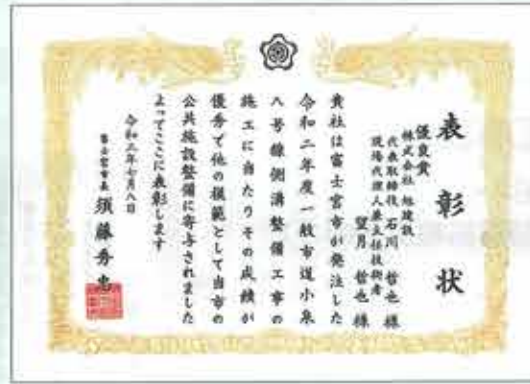 表彰状
優良賞
株式会社 旭建設
代表取締役 石川 哲也 様
現場代理人兼主任技術者
望月 哲也 様
貴社は富士宮市が発注した
令和二年度一般市道小泉
八号線側溝整備工事の
施工に当たりその成績が
優秀で他の模範として当市の
公共施設整備に寄与されました
よってここに表彰します
令和三年七月八日
富士宮市長 須藤秀忠